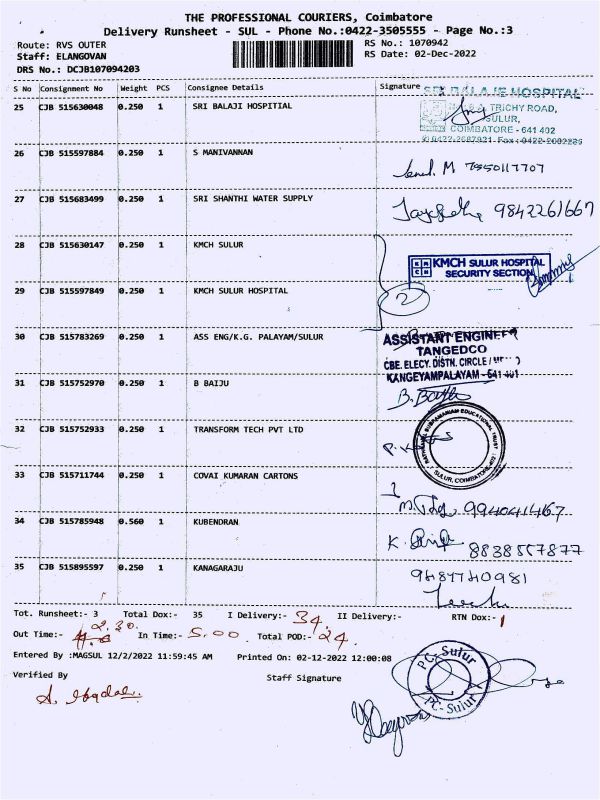 THE PROFESSIONAL COURIERS, Coimbatore
Delivery Runsheet - SUL - Phone No.:0422-3505555 - Page No.:3
Route: RVS OUTER RS No.: 1070942
Staff: ELANGOVAN RS Date: 02-Dec-2022
DRS No.: DCJB107094203
S No Consignment No Weight PCS Consignee Details Signature
SRI BALAJE HOSPITAL
25 CJB 515630048 0.250 1 SRI BALAJI HOSPITIAL
TRICHY ROAD,
SULUR,
COIMBATORE - 641 402
26 CJB 515597884 0.250 1 S MANIVANNAN
M 7950117707
27 CJB 515683499 0.250 1 SRI SHANTHI WATER SUPPLY
9842261667
28 CJB 515630147 0.250 1 KMCH SULUR
KMCH SULUR HOSPITAL
SECURITY SECTION
29 CJB 515597849 0.250 1 KMCH SULUR HOSPITAL
2
30 CJB 515783269 0.250 1 ASS ENG/K.G. PALAYAM/SULUR
ASSISTANT ENGINEER
TANGEDCO
CBE. ELECY. DISTN. CIRCLE
KANGEYAMPALAYAM - 641 401
31 CJB 515752970 0.250 1 B BAIJU
32 CJB 515752933 0.250 1 TRANSFORM TECH PVT LTD
SUBRAMANIAM EDUCATIONAL TRUST
SULUR, COIMBATORE-402
33 CJB 515711744 0.250 1 COVAI KUMARAN CARTONS
9940414167
34 CJB 515785948 0.560 1 KUBENDRAN
8838557877
35 CJB 515895597 0.250 1 KANAGARAJU
9687740981
Tot. Runsheet:- 3 Total Dox:- 35 I Delivery:- 34 II Delivery:- RTN Dox:- 1
Out Time:- 2.30 In Time:- 5.00 Total POD:- 24
Entered By :MAGSUL 12/2/2022 11:59:45 AM Printed On: 02-12-2022 12:00:08
Verified By Staff Signature
PC-Sulur
PC-Sulur